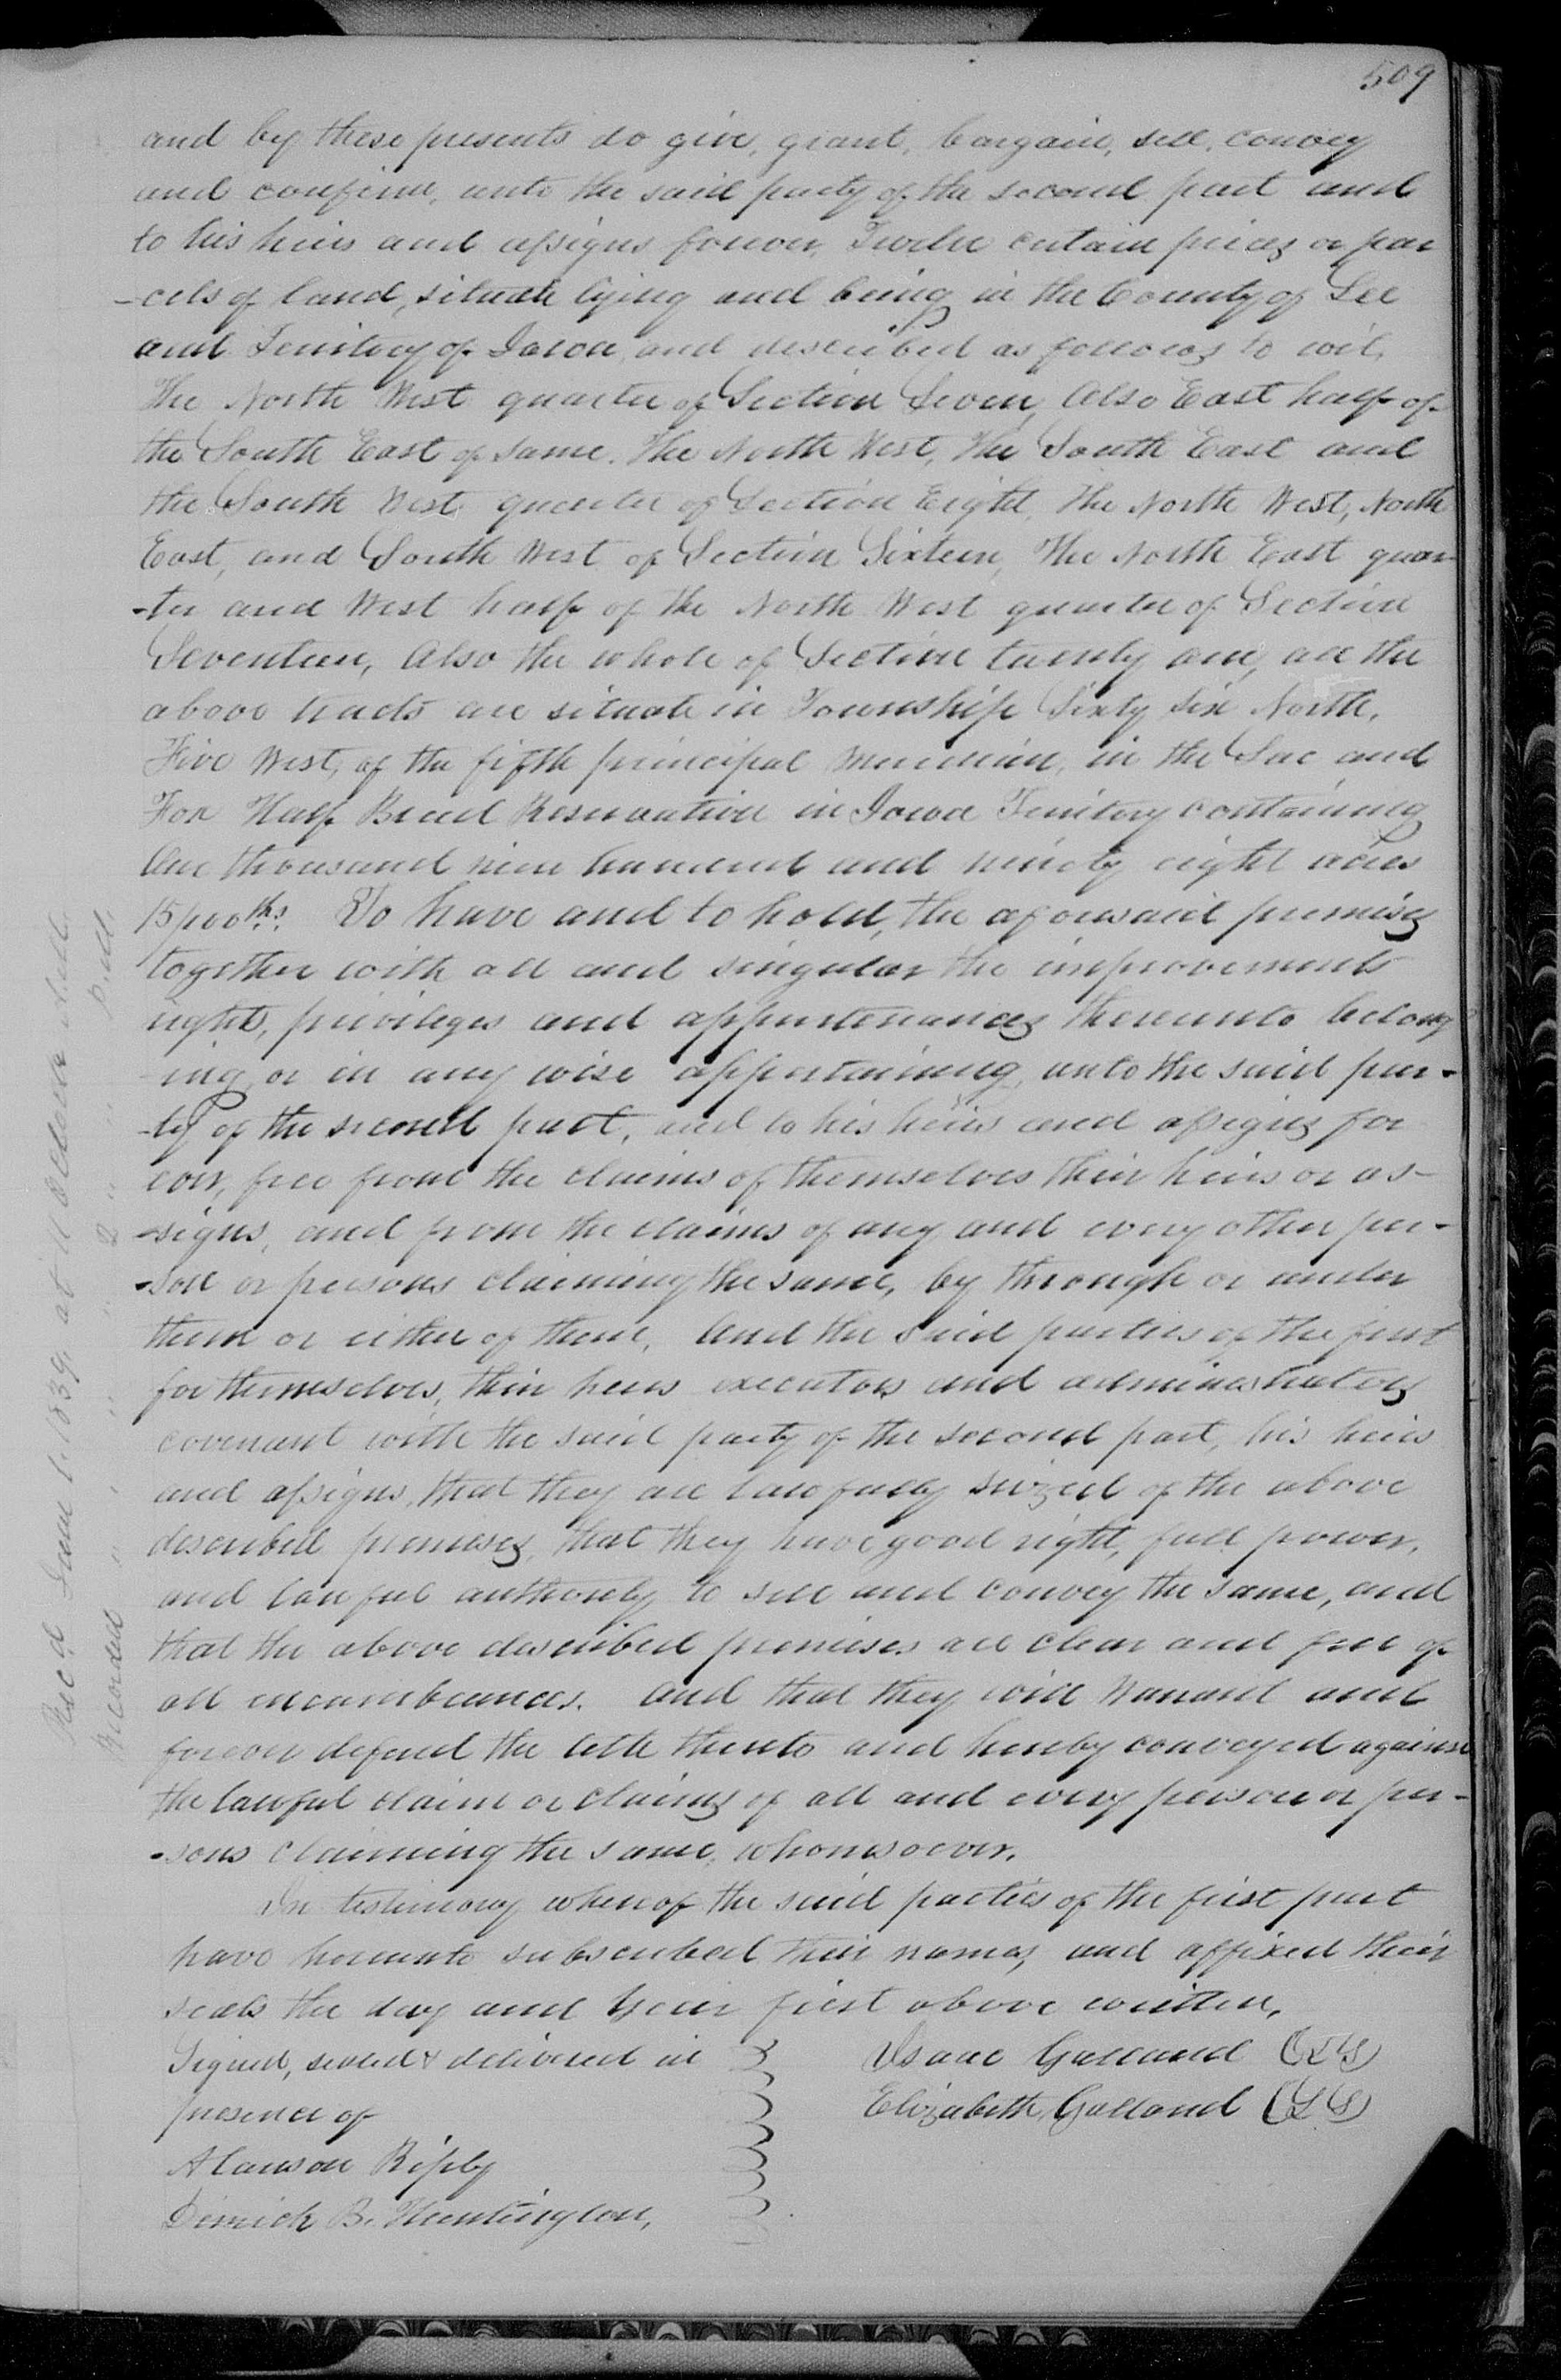 509
and by these presents do give, grant, bargain, sell, convey
and confirm, unto the said party of the second part and
to his heirs and assigns forever, Twelve certain pieces or par
-cels of land, situate lying and being in the County of Lee
and Territory of Iowa and described as follows to wit,
The North West quarter of Section Seven, Also East half of
the South East of same. The North West, The South East and
the South West quarter of Section Eight, The North West, North
East, and South West of Section Sixteen, The North East quar-
-ter and West half of the North West quarter of Section
Seventeen, Also the whole of Section twenty one, all the
above tracts are situate in Township Sixty Six North,
Five West, of the fifth principal Meridian, in the Sac and
Fox Half Breed Reservation in Iowa Territory containing
One thousand nine hundred and ninety eight acres
15/100ths. To have and to hold, the aforesaid premises
together with all and singular the improvements
rights, privileges and appurtenances thereunto belong
ing or in any wise appertaining, unto the said par-
-ty of the second part, and to his heirs and assigns for
ever, free from the claims of themselves their heirs or as-
-signs, and from the claims of any and every other per-
-son or persons claiming the same, by through or under
them or either of them, And the said parties of the first
for themselves, their heirs executors and administrators
covenant with the said party of the second part, his heirs
and assigns, that they are lawfully seized of the above
described premises, that they have good right, full power,
and lawful authority to sell and convey the same, and
that the above described premises are clear and free of
all incumbrances. And that they will Warrant and
forever defend the title thereto and hereby conveyed against
the lawful claim or claims of all and every person or per-
-sons claiming the same, whomsoever.
In testimony whereof the said parties of the first part
have hereunto subscribed their names, and affixed their
seals the day and year first above written,
Signed, sealed & delivered in
presence of
Alanson Riply
Dimick B. Huntington,
Isaac Galland (LS)
Elizabeth Galland (LS)
Rec.d June 1. 1839, at 11 OClock
Recorded